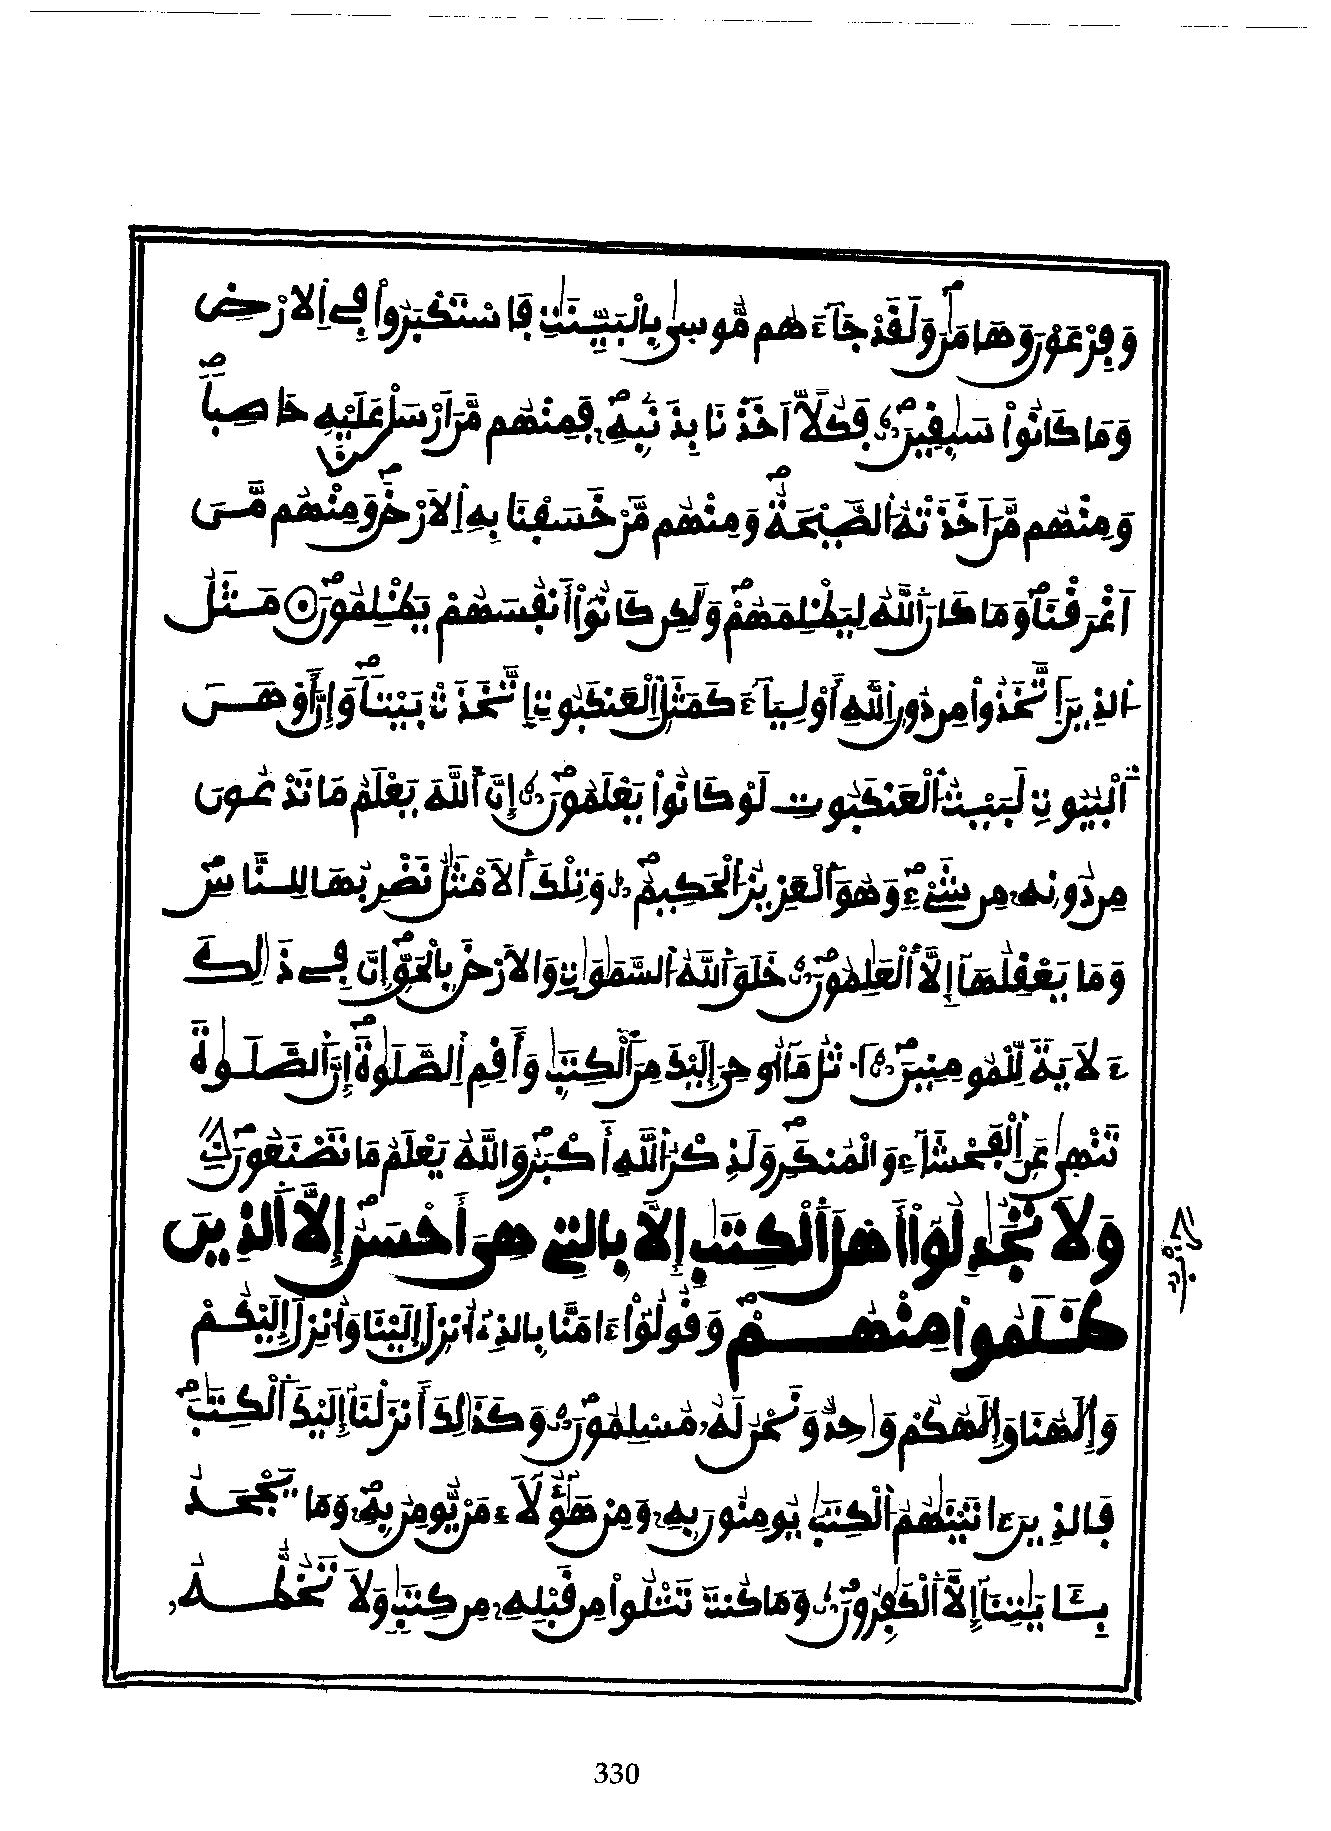 وَفِرْعَوْنَ وَهَامَٰنَ وَلَقَدْ جَآءَهُم مُّوسَىٰ بِالْبَيِّنَٰتِ فَاسْتَكْبَرُواْ فِے اِلَارْضِ
وَمَا كَانُواْ سَٰبِقِينَ فَكُلّاً اَخَذْنَا بِذَنۢبِهِۦ فَمِنْهُم مَّنَ اَرْسَلْنَا عَلَيْهِ حَاصِباً
وَمِنْهُم مَّنَ اَخَذَتْهُ اُلصَّيْحَةُ وَمِنْهُم مَّنْ خَسَفْنَا بِهِ اِلَارْضَ وَمِنْهُم مَّنَ
اَغْرَقْنَا وَمَا كَانَ اَللَّهُ لِيَظْلِمَهُمْ وَلَٰكِن كَانُوٓاْ أَنفُسَهُمْ يَظْلِمُونَ مَثَلُ
اُلذِينَ اَ۪تَّخَذُواْ مِن دُونِ اِللَّهِ أَوْلِيَآءَ كَمَثَلِ اِلْعَنكَبُوتِ اِ۪تَّخَذَتْ بَيْتاً وَإِنَّ أَوْهَنَ
اَلْبُيُوتِ لَبَيْتُ اُلْعَنكَبُوتِ لَوْ كَانُواْ يَعْلَمُونَ إِنَّ اَللَّهَ يَعْلَمُ مَا تَدْعُونَ
مِن دُونِهِۦ مِن شَےْءٍ وَهُوَ اَلْعَزِيزُ اُلْحَكِيمُ وَتِلْكَ اَلَامْثَٰلُ نَضْرِبُهَا لِلنَّاسِ
وَمَا يَعْقِلُهَآ إِلَّا اَلْعَٰلِمُونَ خَلَقَ اَللَّهُ اُلسَّمَٰوَٰتِ وَالَارْضَ بِالْحَقِّ إِنَّ فِے ذَٰلِكَ
ءَلَايَةً لِّلْمُومِنِينَ اَ۟تْلُ مَآ أُوحِيَ إِلَيْكَ مِنَ اَلْكِتَٰبِ وَأَقِمِ اِلصَّلَوٰةَ إِنَّ اَلصَّلَوٰةَ
تَنْهَىٰ عَنِ اِلْفَحْشَآءِ وَالْمُنكَرِ وَلَذِكْرُ اُللَّهِ أَكْبَرُ وَاللَّهُ يَعْلَمُ مَا تَصْنَعُونَ
وَلَا تُجَٰدِلُوٓاْ أَهْلَ اَلْكِتَٰبِ إِلَّا بِالتِے هِيَ أَحْسَنُ إِلَّا اَلذِينَ
ظَلَمُواْ مِنْهُمْ وَقُولُوٓاْ ءَامَنَّا بِالذِےٓ أُنزِلَ إِلَيْنَا وَأُنزِلَ إِلَيْكُمْ
وَإِلَٰهُنَا وَإِلَٰهُكُمْ وَٰحِدٌ وَنَحْنُ لَهُۥ مُسْلِمُونَ وَكَذَٰلِكَ أَنزَلْنَآ إِلَيْكَ اَلْكِتَٰبَ
فَالذِينَ ءَاتَيْنَٰهُمُ اُلْكِتَٰبَ يُومِنُونَ بِهِۦ وَمِنْ هَٰٓؤُلَآءِ مَنْ يُّومِنُ بِهِۦ وَمَا يَجْحَدُ
بِـَٔايَٰتِنَآ إِلَّا اَلْكَٰفِرُونَ وَمَا كُنتَ تَتْلُواْ مِن قَبْلِهِۦ مِن كِتَٰبٍ وَلَا تَخُطُّهُۥ
حزب
330